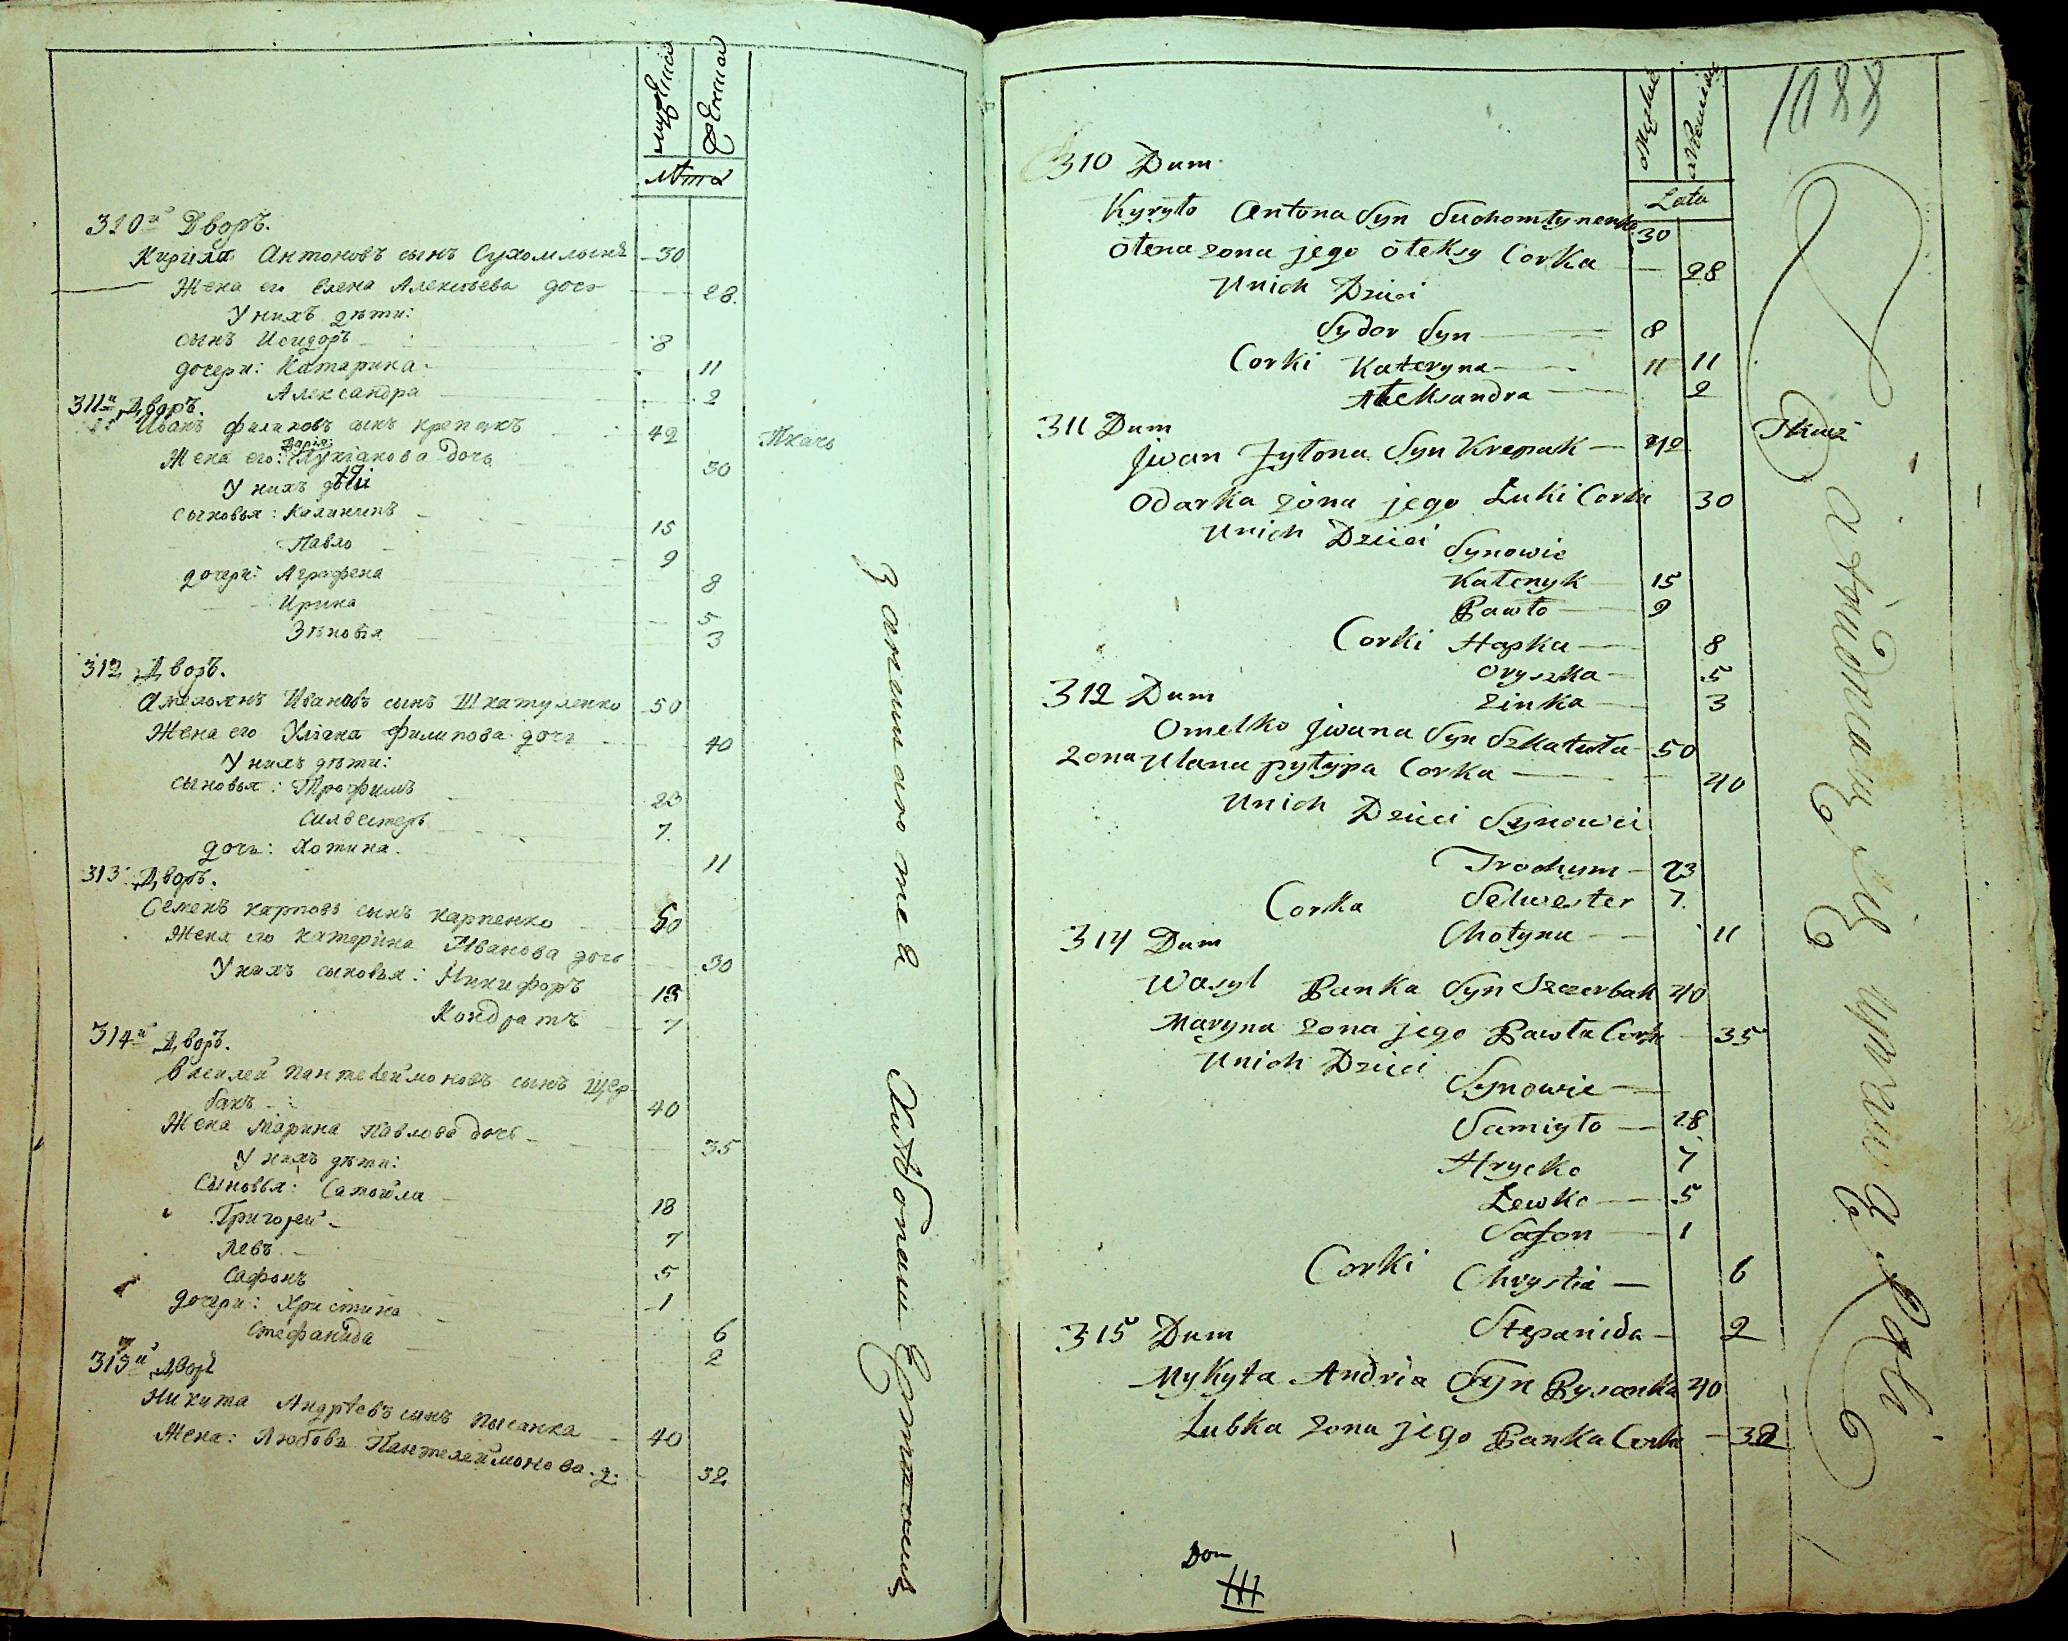 мужеска
женска
лѣта
310й Дворъ.
Кирила Антоновъ сынъ Сухомлынъ 30
Жена его Елена Алексѣева дочь 28.
У нихъ дѣти:
сынъ Исидоръ 8
дочери: Катарина 11
Александра 2
311й Дворъ.
Иванъ Филиповъ сынъ Крепакъ 42 Ткачь
Жена его: Дарія Лукіанова дочь 30
У нихъ дѣти
сыновья: Калиникъ 15
Павло 9
дочери: Агрифена 8
Ирина 5
Зѣновія 3
312 Дворъ.
Амельянъ Ивановъ сынъ Шкатуленко 50
Жена его Уліана Филипова дочь 40
У нихъ дѣти:
сыновья: Трофимъ 23
Силвестеръ 7.
дочь: Хотина. 11
313: Дворъ.
Семенъ Карповъ сынъ Карпенко 50
Жена его Катерина Иванова дочь 30
У нихъ сыновья: Никифоръ 13
Кондратъ 7
314й Дворъ.
Василей Пантелеймоновъ сынъ Щер-
бакъ 40
Жена Марина Павлова дочь 35
У нихъ дѣти:
Сыновья: Самойла 18
Григорей 7
Левъ 5
Сафонъ 1
дочери: Христина 6
Стефанида 2
315й Дворъ
Никита Андрѣевъ сынъ Писанка 40
Жена: Любовь Пантелеймонова. д. 32
Занимаются Хлѣбопашествомъ
1088
Męskie
Żeńskie
Lata
310 Dum
Kyryło Antona Syn Suchomłynenko 30
Ołena żona jego Ołeksy Corka 28
Unich Dzieci
Sydor Syn 8
Corki Kateryna 11 11
Ałeksandra 2
311 Dum
Jwan Fyłona Syn Krepak 42 Tkacz
Odarka żona jego Łuki Corka 30
Unich Dzieci Synowie
Kałenyk 15
Pawło 9
Corki Hapka 8
Oryszka 5
312 Dum Zinka 3
Omelko Jwana Syn Szkatuła 50
żona Ulana Pyłypa Corka 40
Unich Dzieci Synowie
Trochym 23
Corka Selwester 7.
314 Dum Chotyna 11
Wasyl Panka Syn Szczerbak 40
Maryna żona jego Pawła Corka 35
Unich Dzieci
Synowie
Samiyło 18
Hrycko 7
Łewko 5
Safon 1
Corki Chrystia 6
315 Dum Stepanida 2
Mykyta Andria Syn Pysanka 40
Łubka żona jego Panka Corka 32
Zatrudniaią się uprawą Roli
Dom
III